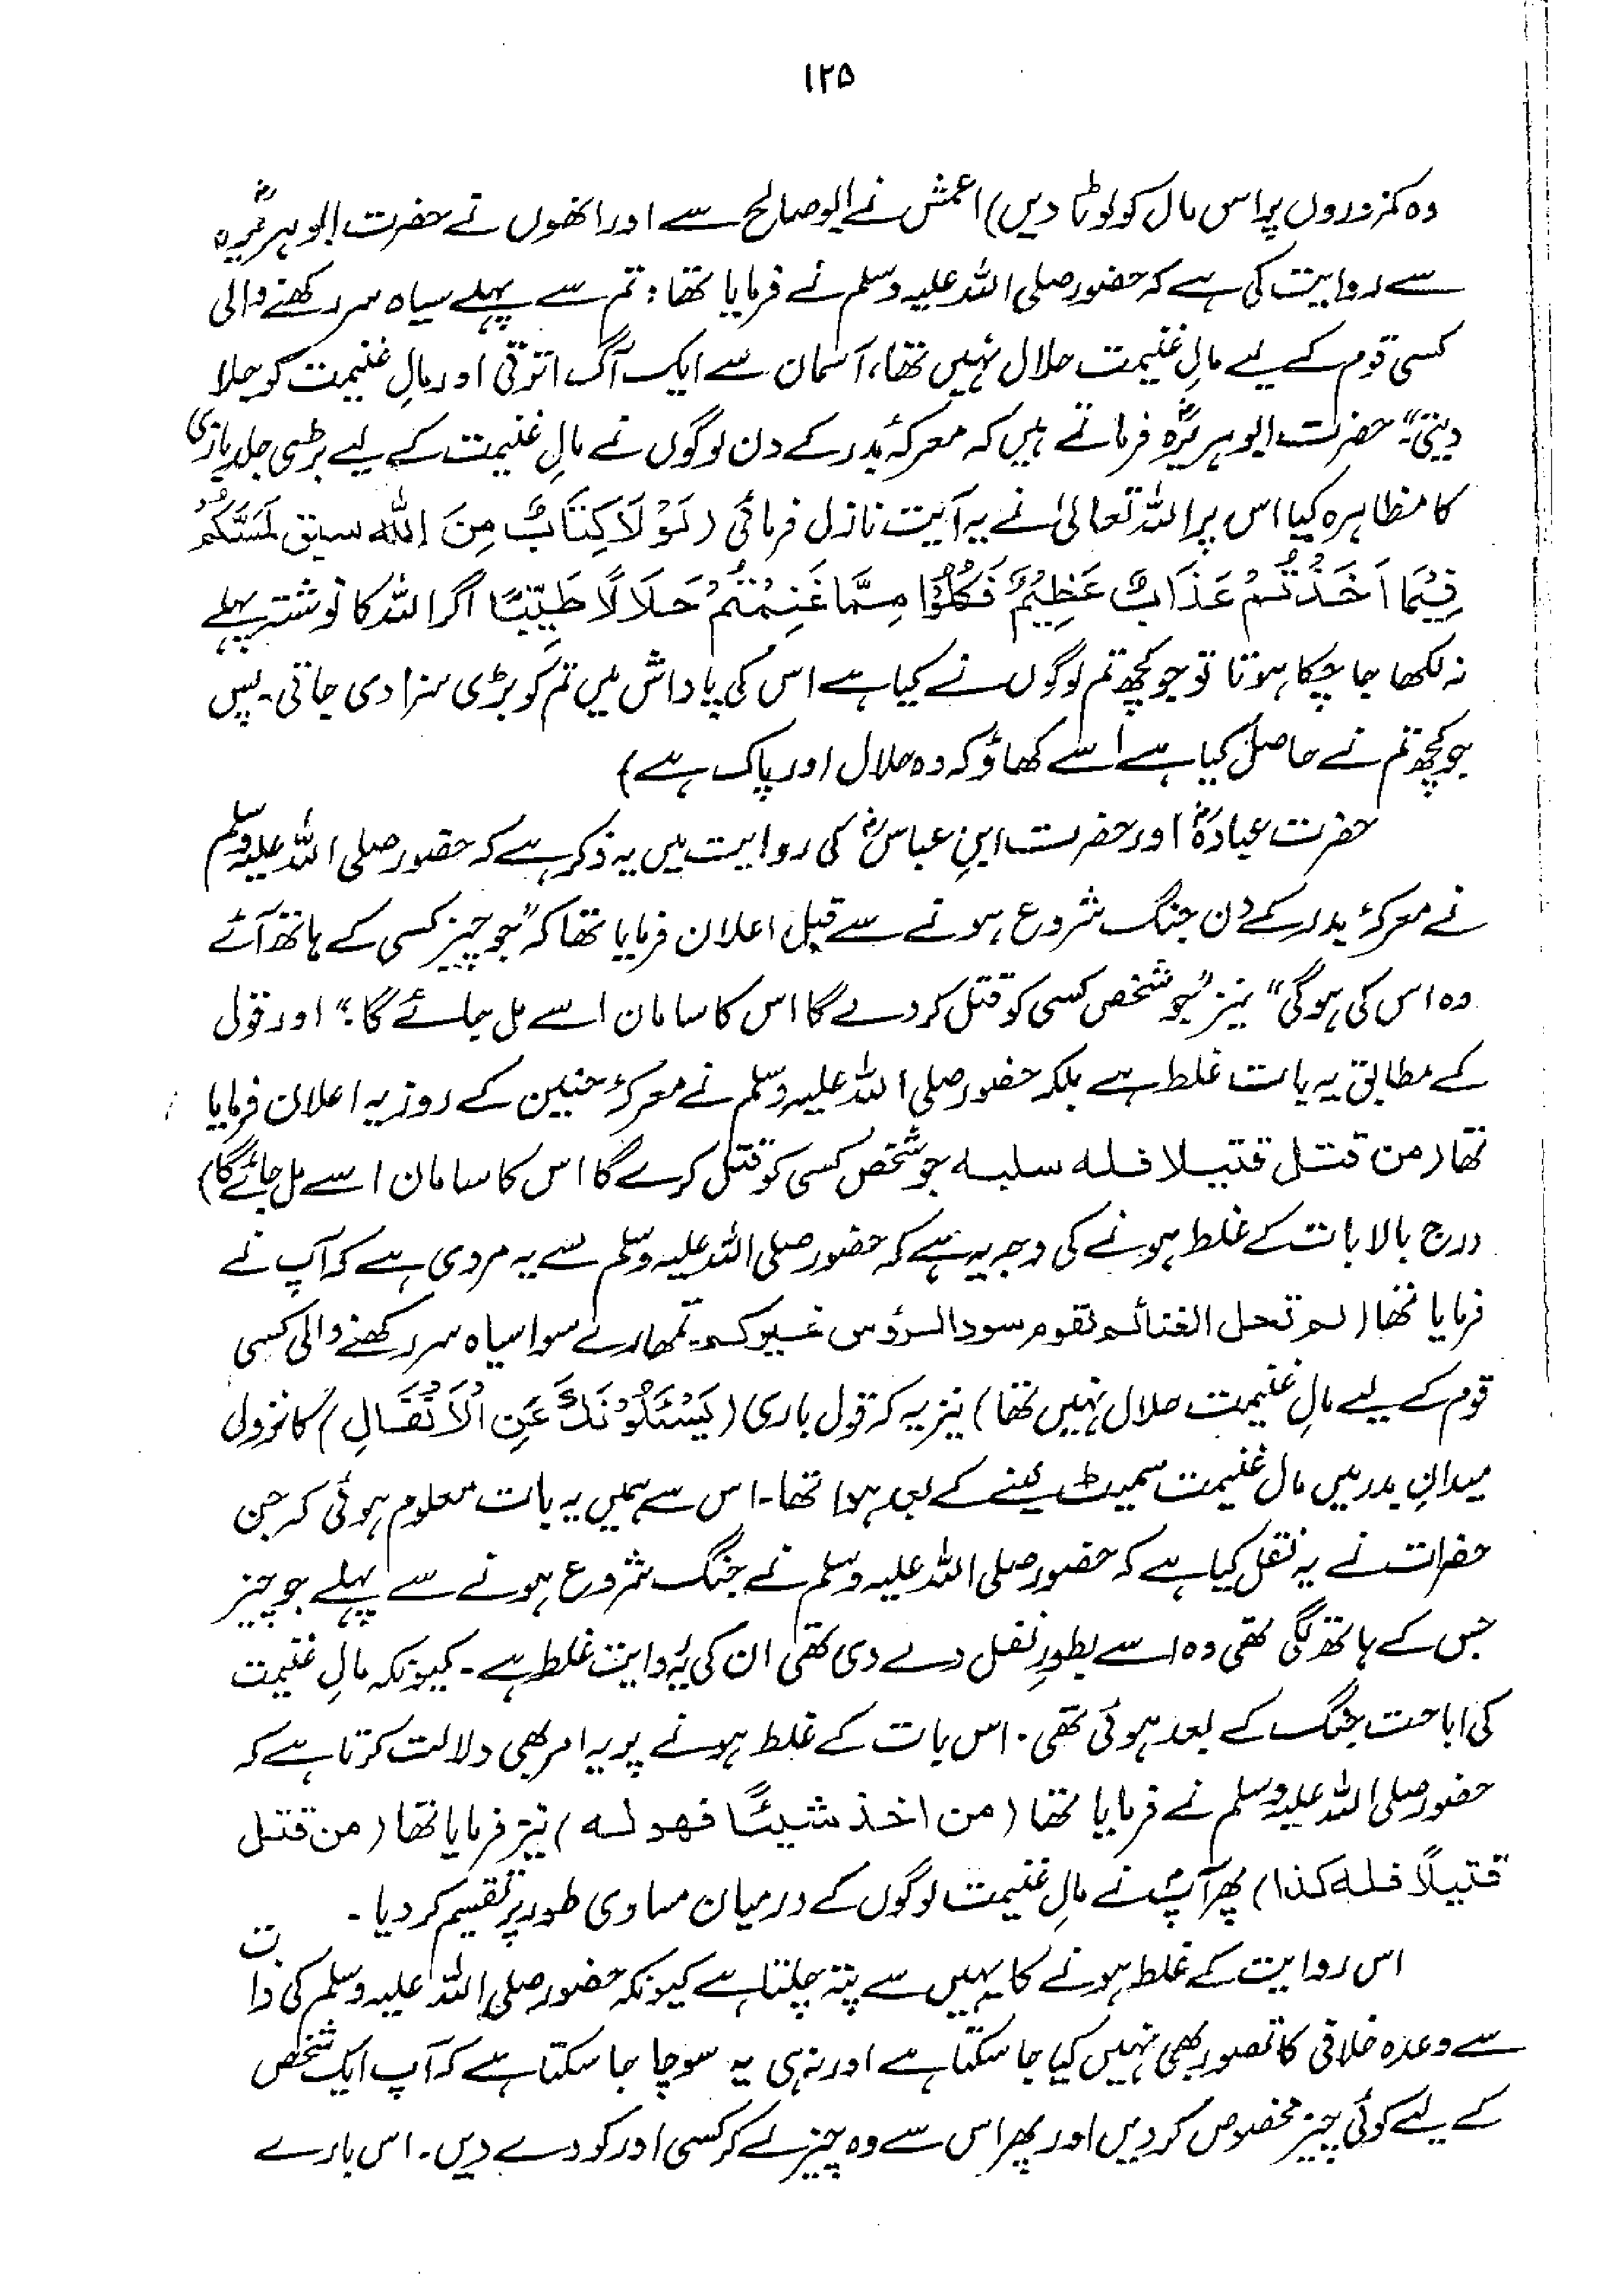 ۱۲۵
وہ کمزوروں پر اس مال کو لوٹا دیں) اعمش نے ابو صالح سے اور انھوں نے حضرت ابو ہریرہؓ
سے روایت کی ہے کہ حضور صلی اللہ علیہ وسلم نے فرمایا تھا: تم سے پہلے سیاہ سر رکھنے والی
کسی قوم کے لیے مالِ غنیمت حلال نہیں تھا، آسمان سے ایک آگ اترتی اور مالِ غنیمت کو جلا
دیتی۔" حضرت ابو ہریرہؓ فرماتے ہیں کہ معرکۂ بدر کے دن لوگوں نے مالِ غنیمت کے لیے بڑی جلد بازی
کا مظاہرہ کیا اس پر اللہ تعالیٰ نے یہ آیت نازل فرمائی (لَوْلَا كِتَابٌ مِنَ اللہ سبق لَمَسَّكُمْ
فِيْمَا اَخَذْتُمْ عَذَابٌ عَظِيْمٌ فَكُلُوْا مِمَّا غَنِمْتُمْ حَلَالًا طَيِّبًا اگر اللہ کا نوشتہ پہلے
نہ لکھا جا چکا ہوتا تو جو کچھ تم لوگوں نے کیا ہے اس کی پاداش میں تم کو بڑی سزا دی جاتی۔ پس
جو کچھ تم نے حاصل کیا ہے اُسے کھاؤ کہ وہ حلال اور پاک ہے)
حضرت عبادہؓ اور حضرت ابنِ عباسؓ کی روایت میں یہ ذکر ہے کہ حضور صلی اللہ علیہ وسلم
نے معرکۂ بدر کے دن جنگ شروع ہونے سے قبل اعلان فرمایا تھا کہ "جو چیز کسی کے ہاتھ آئے
وہ اس کی ہوگی" نیز "جو شخص کسی کو قتل کر دے گا اس کا سامان اسے مل جائے گا؛" اور قول
کے مطابق یہ بات غلط ہے بلکہ حضور صلی اللہ علیہ وسلم نے معرکۂ حنین کے روز یہ اعلان فرمایا
تھا (من قتل قتيلا فله سلبه جو شخص کسی کو قتل کرے گا اس کا سامان اسے مل جائے گا)
درج بالا بات کے غلط ہونے کی وجہ یہ ہے کہ حضور صلی اللہ علیہ وسلم سے یہ مروی ہے کہ آپ نے
فرمایا تھا (لم تحل الغنائم لقوم سود الرؤس غيركم۔ تمھارے سوا سیاہ سر رکھنے والی کسی
قوم کے لیے مالِ غنیمت حلال نہیں تھا) نیز یہ کہ قول باری (يَسْئَلُوْنَكَ عَنِ الْاَنْفَالِ) کا نزول
میدانِ بدر میں مال غنیمت سمیٹ لینے کے بعد ہوا تھا۔ اس سے ہمیں یہ بات معلوم ہوئی کہ جن
حضرات نے یہ نقل کیا ہے کہ حضور صلی اللہ علیہ وسلم نے جنگ شروع ہونے سے پہلے جو چیز
جس کے ہاتھ لگی تھی وہ اسے بطورِ نفل دے دی تھی ان کی یہ روایت غلط ہے۔ کیونکہ مالِ غنیمت
کی اباحت جنگ کے بعد ہوئی تھی۔ اس بات کے غلط ہونے پر یہ امر بھی دلالت کرتا ہے کہ
حضور صلی اللہ علیہ وسلم نے فرمایا تھا (من اخذ شيئًا فهو له) نیز فرمایا تھا (من قتل
قتيلًا فله كذا) پھر آپؐ نے مالِ غنیمت لوگوں کے درمیان مساوی طور پر تقسیم کر دیا۔
اس روایت کے غلط ہونے کا یہیں سے پتہ چلتا ہے کیونکہ حضور صلی اللہ علیہ وسلم کی ذات
سے وعدہ خلافی کا تصور بھی نہیں کیا جا سکتا ہے اور نہ ہی یہ سوچا جا سکتا ہے کہ آپ ایک شخص
کے لیے کوئی چیز مخصوص کر دیں اور پھر اس سے وہ چیز لے کر کسی اور کو دے دیں۔ اس بارے